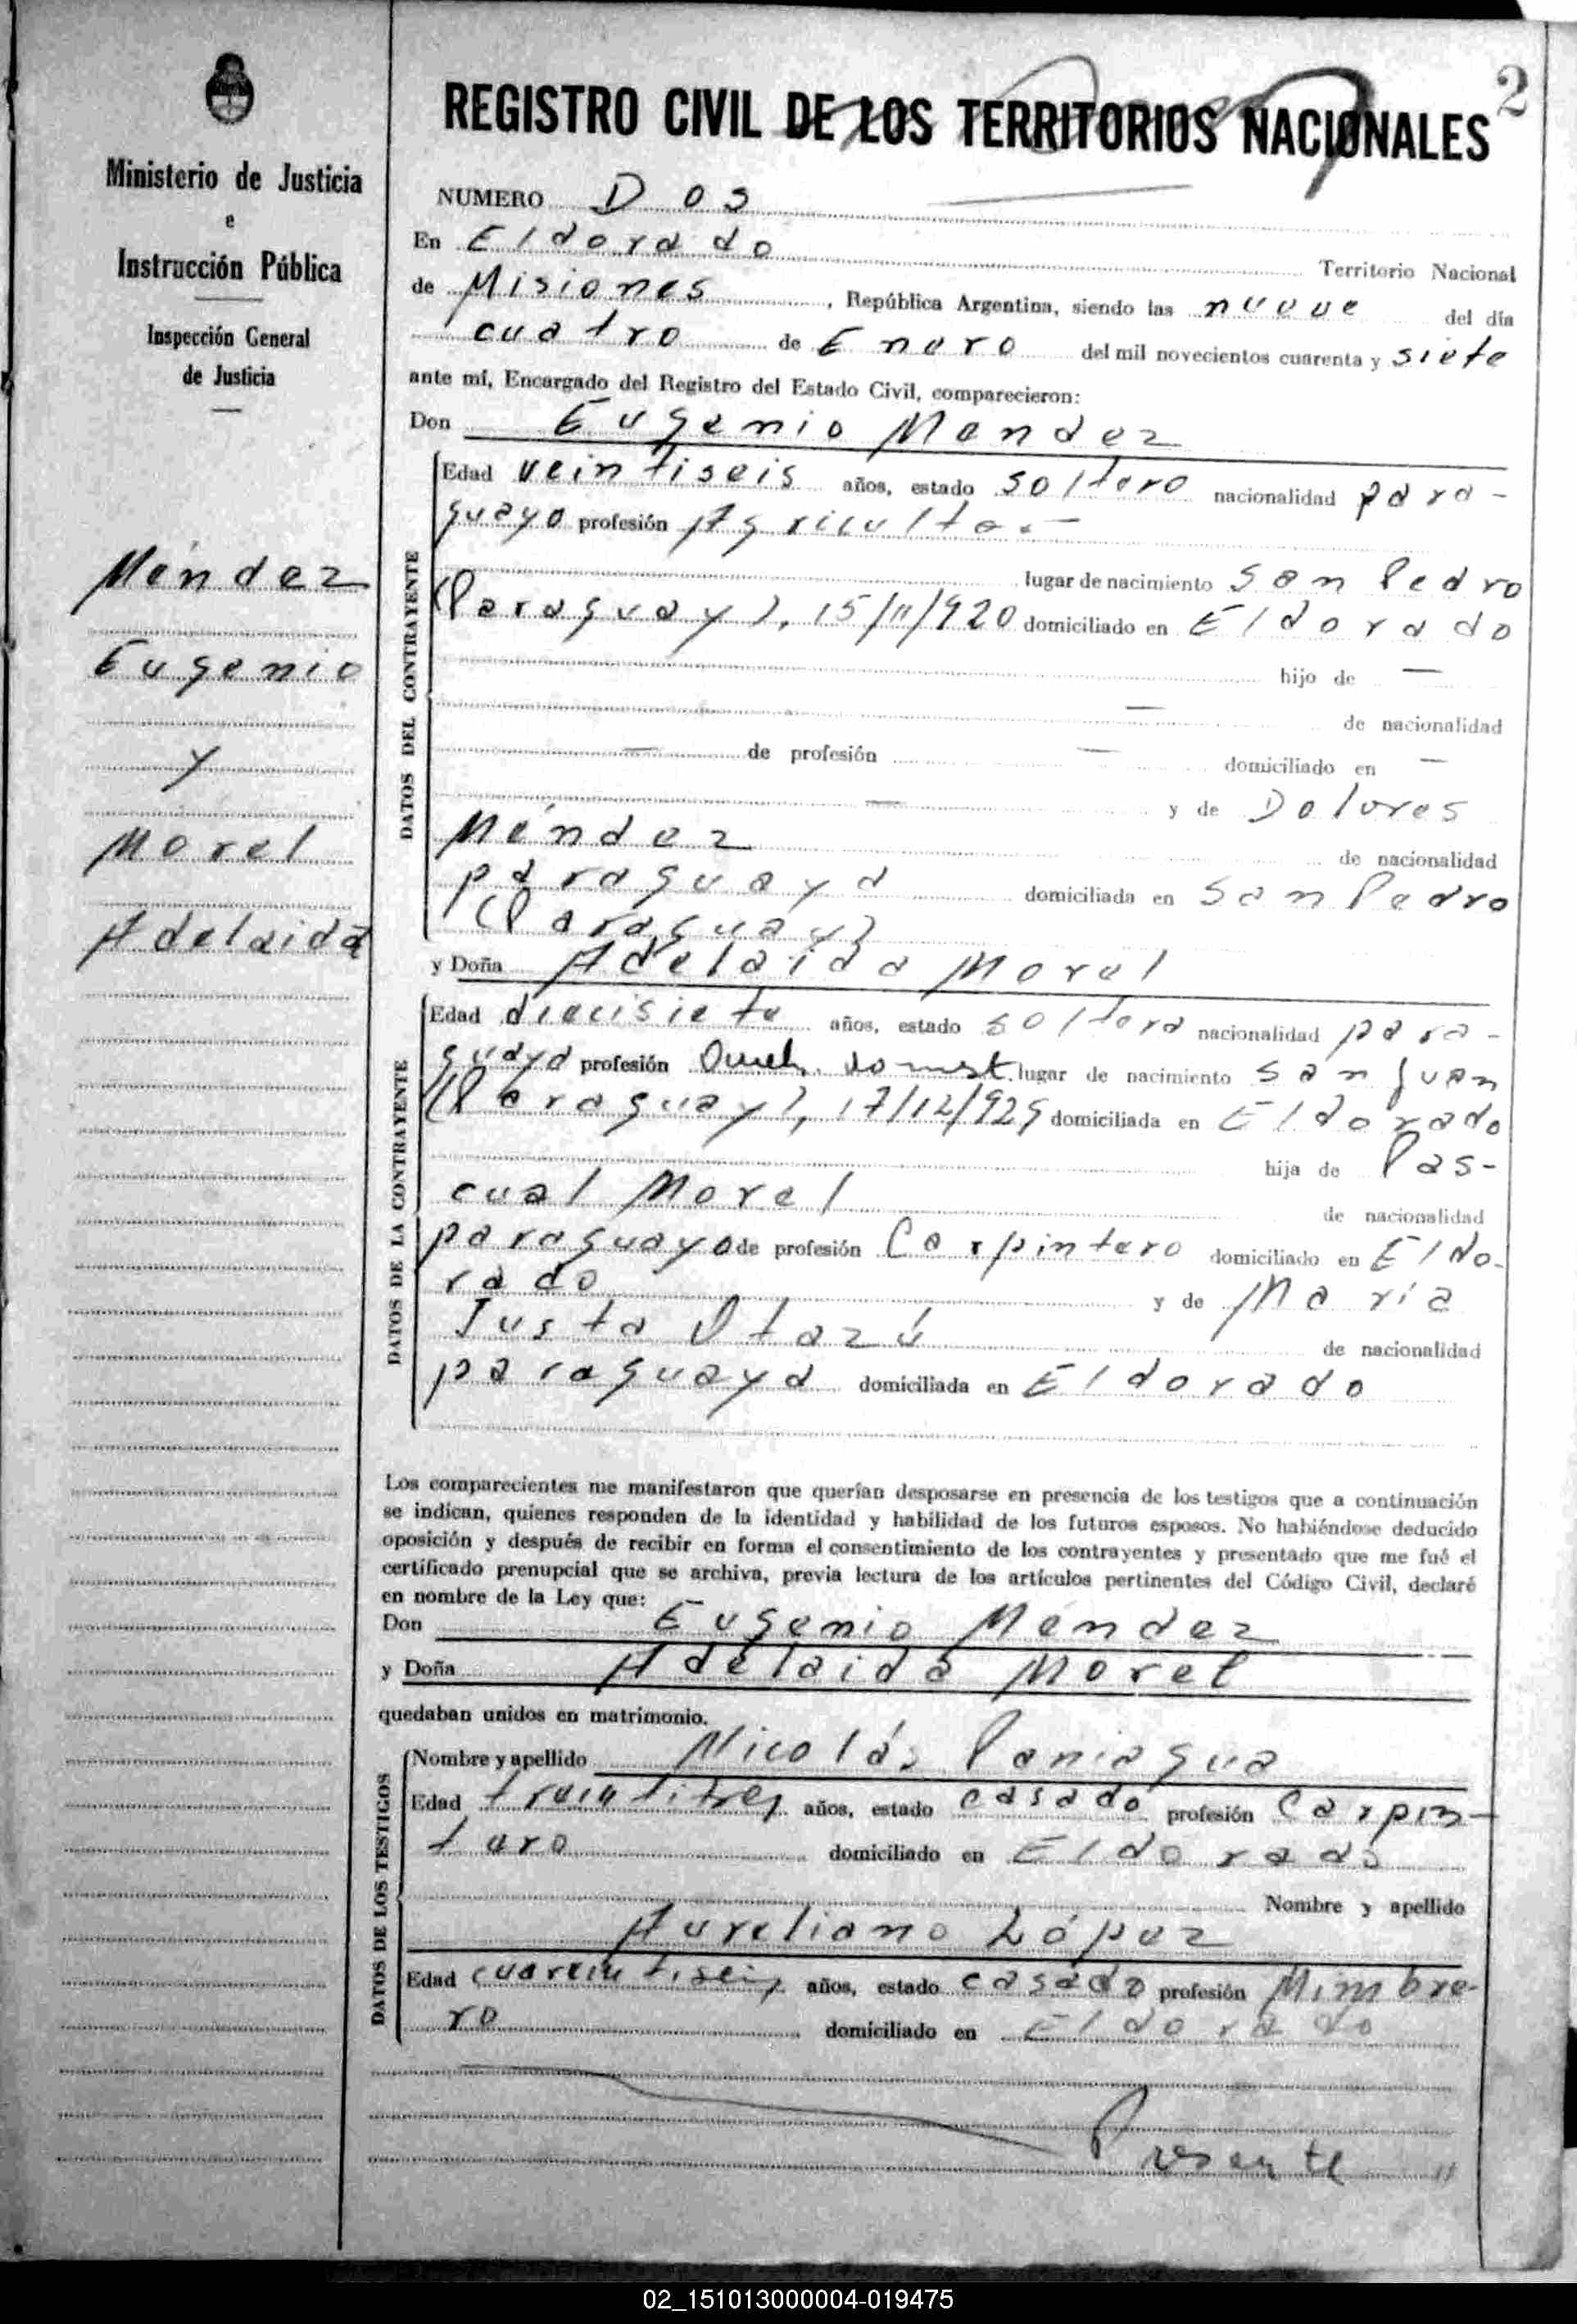 2
REGISTRO CIVIL DE LOS TERRITORIOS NACIONALES
Ministerio de Justicia
e
Instrucción Pública
Inspección General
de Justicia
Méndez
Eugenio
y
Morel
Adelaida
NUMERO Dos
En Eldorado Territorio Nacional
de Misiones, República Argentina, siendo las nueve del día
cuatro de Enero del mil novecientos cuarenta y siete
ante mí, Encargado del Registro del Estado Civil, comparecieron:
Don Eugenio Mendez
DATOS DEL CONTRAYENTE
Edad veintiseis años, estado soltero nacionalidad para-
guayo profesión Agricultor.—
lugar de nacimiento San Pedro
(Paraguay), 15/11/920 domiciliado en Eldorado
hijo de —
— de nacionalidad
— de profesión — domiciliado en —
— y de Dolores
Méndez de nacionalidad
paraguaya domiciliada en San Pedro
(Paraguay)
y Doña Adelaida Morel
DATOS DE LA CONTRAYENTE
Edad diecisiete años, estado soltera nacionalidad para-
guaya profesión Queh. domest. lugar de nacimiento San Juan
(Paraguay), 17/12/929 domiciliada en Eldorado
hija de Pas-
cual Morel de nacionalidad
paraguayo de profesión Carpintero domiciliado en Eldo-
rado y de María
Justa Otazú de nacionalidad
paraguaya domiciliada en Eldorado
Los comparecientes me manifestaron que querían desposarse en presencia de los testigos que a continuación
se indican, quienes responden de la identidad y habilidad de los futuros esposos. No habiéndose deducido
oposición y después de recibir en forma el consentimiento de los contrayentes y presentado que me fué el
certificado prenupcial que se archiva, previa lectura de los artículos pertinentes del Código Civil, declaré
en nombre de la Ley que:
Don Eugenio Méndez
y Doña Adelaida Morel
quedaban unidos en matrimonio.
DATOS DE LOS TESTIGOS
Nombre y apellido Nicolás Paniagua
Edad treintitres años, estado casado profesión Carpin-
tero domiciliado en Eldorado
Nombre y apellido
Aureliano López
Edad cuarentiseis años, estado casado profesión Mimbre-
ro domiciliado en Eldorado
Presente //
02_151013000004-019475